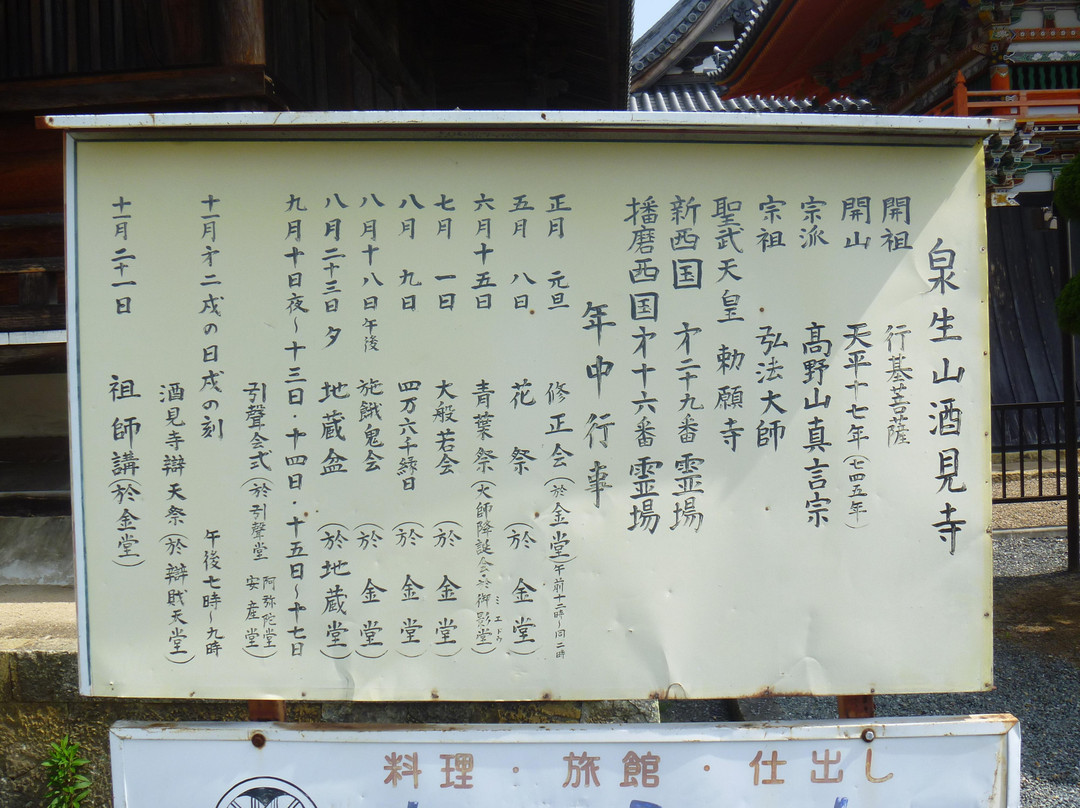 泉生山酒見寺
開祖 行基菩薩
開山 天平十七年(七四五年)
宗派 高野山真言宗
宗祖 弘法大師
聖武天皇 勅願寺
新西国 才二十九番 霊場
播磨西国才十六番 霊場
年中行事
正月 元旦 修正会(於金堂)午前十二時~同二時
五月 八日 花祭 (於 金堂)
六月十五日 青葉祭(大師降誕会於御影堂)ミエドウ
七月 一日 大般若会 (於 金堂)
八月 九日 四万六千縁日 (於 金堂)
八月十八日午後 施餓鬼会 (於 金堂)
八月二十三日夕 地蔵盆 (於地蔵堂)
九月十日夜~十三日・十四日・十五日~十七日
引聲会式(於引聲堂 阿弥陀堂 安産堂)
十一月才二戌の日戌の刻 午後七時~九時
酒見寺辯天祭(於辯財天堂)
十一月二十一日 祖師講(於金堂)
料理・旅館・仕出し